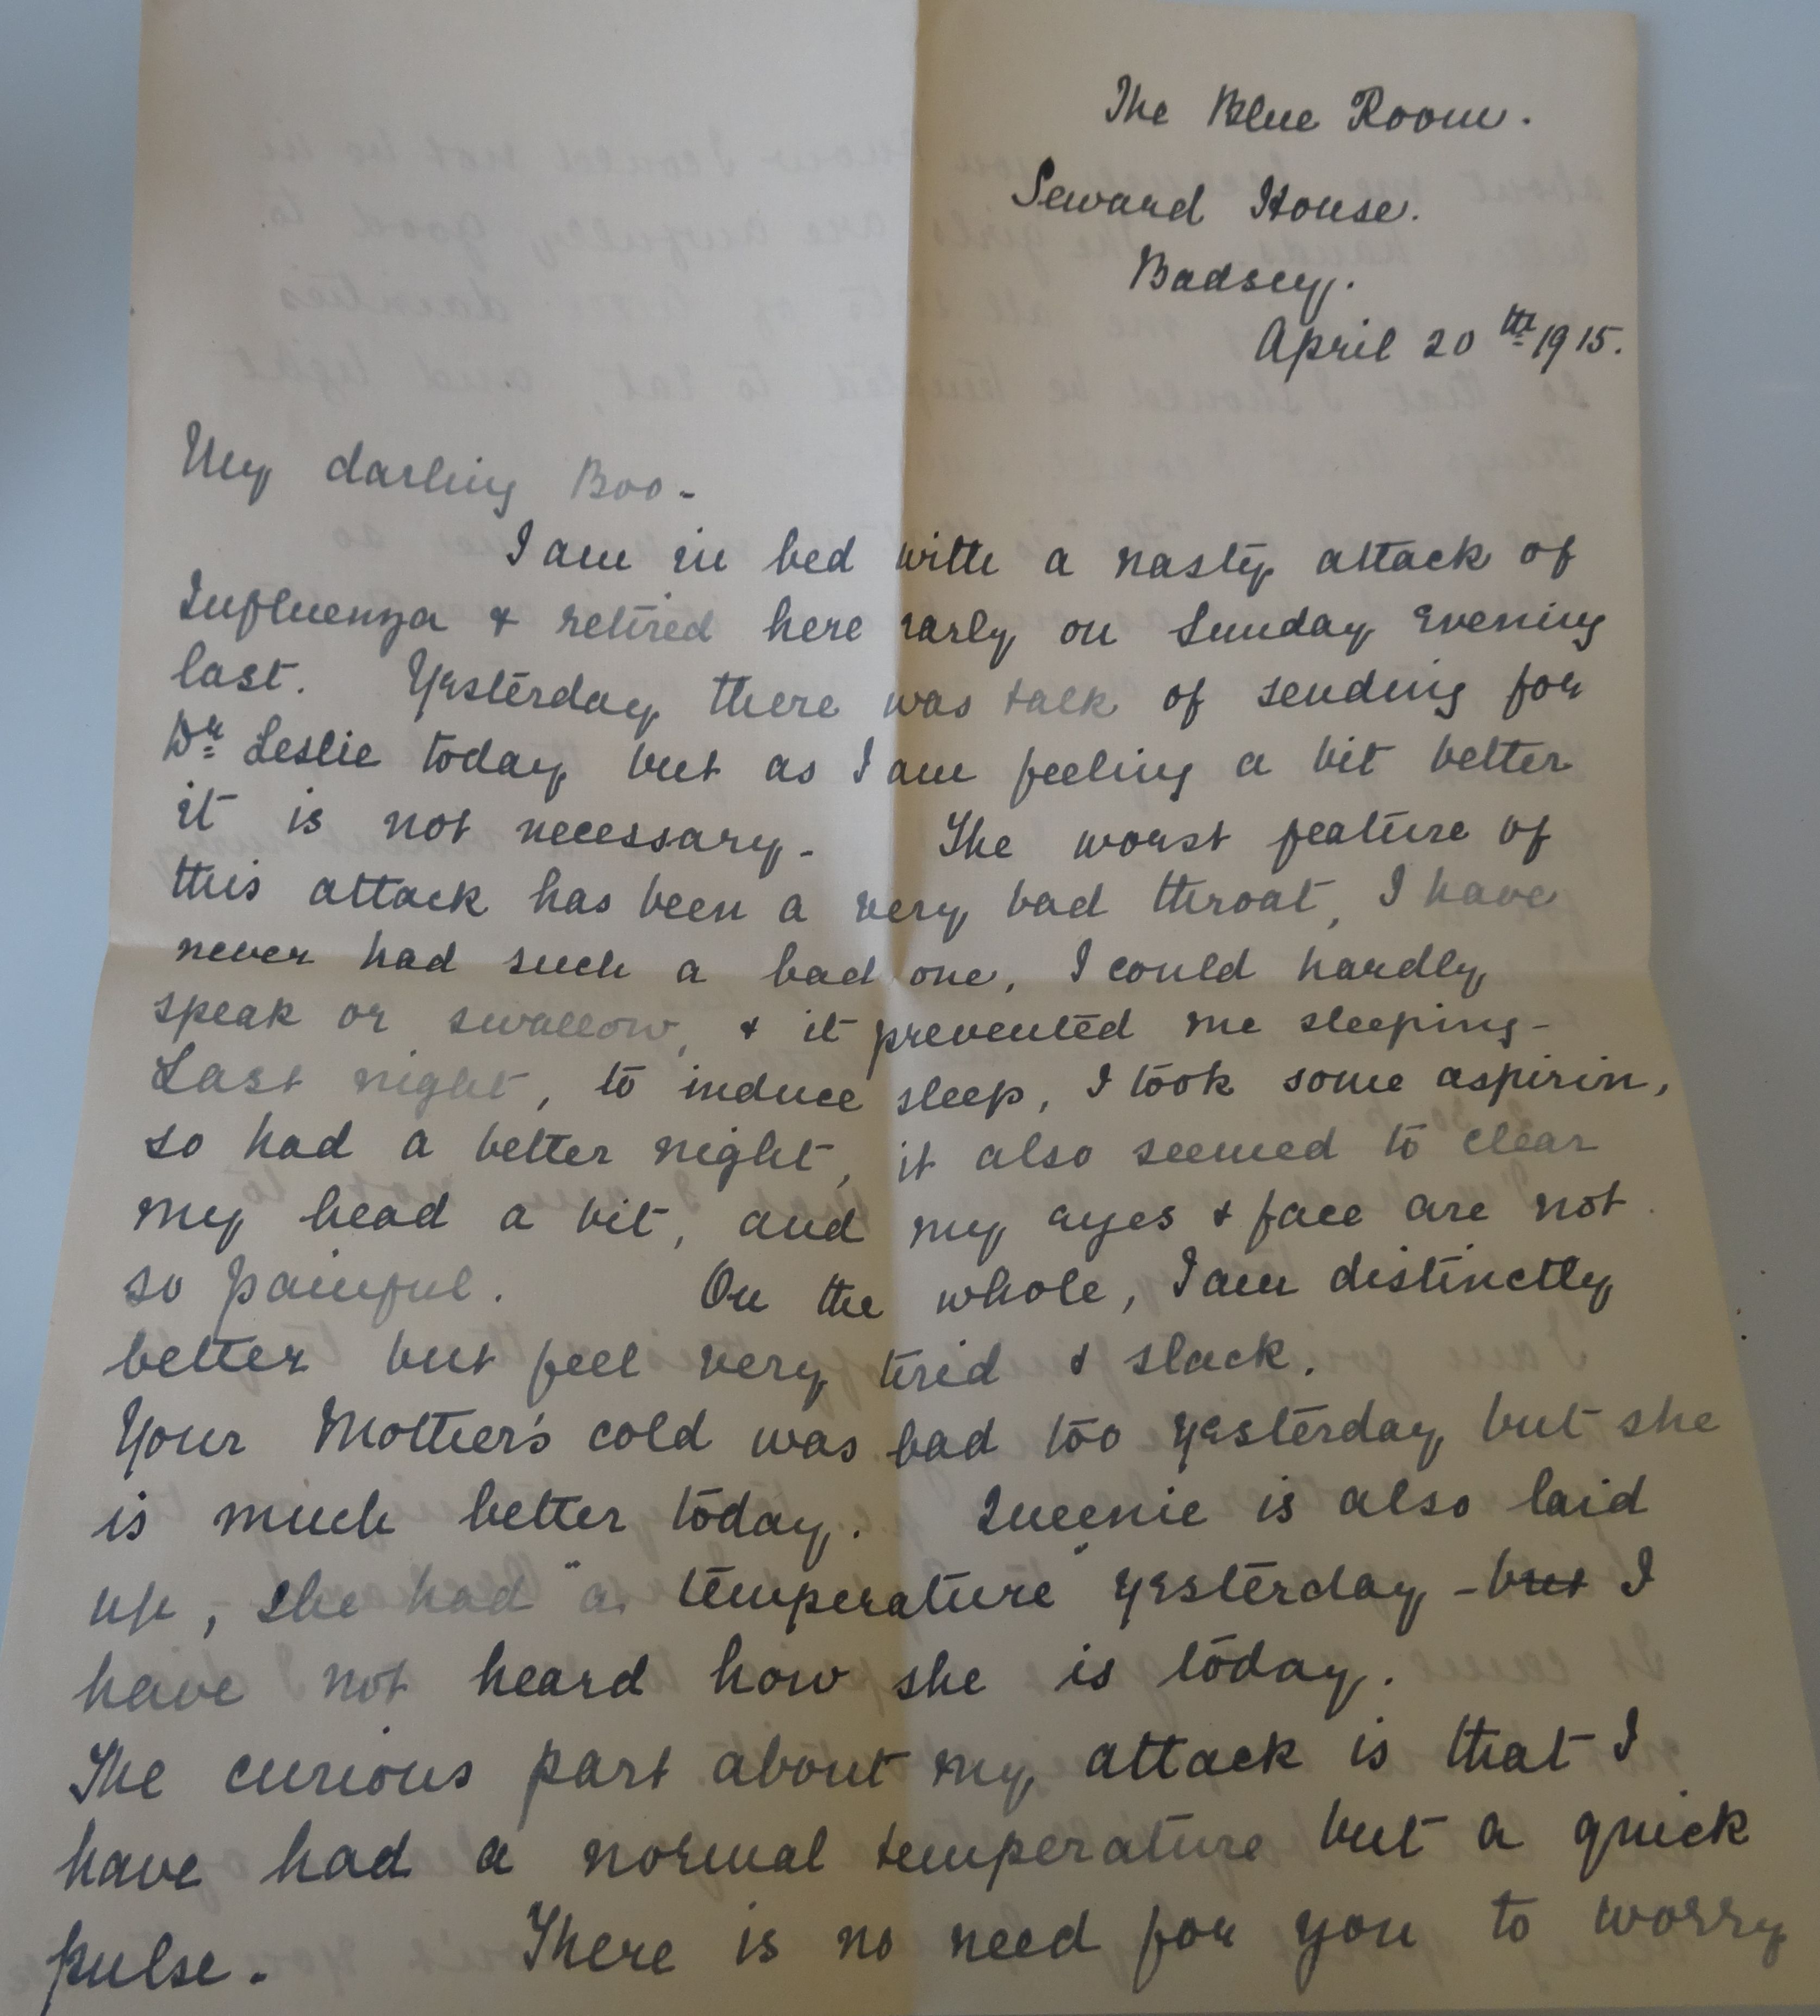 The Blue Room.
Seward House.
Badsey.
April 20th 1915.
My darling Boo -
I am in bed with a nasty attack of
Influenza & retired here early on Sunday evening
last. Yesterday there was talk of sending for
Dr Leslie today but as I am feeling a bit better
it is not necessary - The worst feature of
this attack has been a very bad throat, I have
never had such a bad one, I could hardly
speak or swallow, & it prevented me sleeping -
Last night, to induce sleep, I took some aspirin,
so had a better night, it also seemed to clear
my head a bit, and my eyes & face are not
so painful. On the whole, I am distinctly
better but feel very tired & slack.
Your Mother's cold was bad too yesterday but she
is much better today. Queenie is also laid
up, she had "a temperature" yesterday - but I
have not heard how she is today.
The curious part about my attack is that I
have had a normal temperature but a quick
pulse. There is no need for you to worry